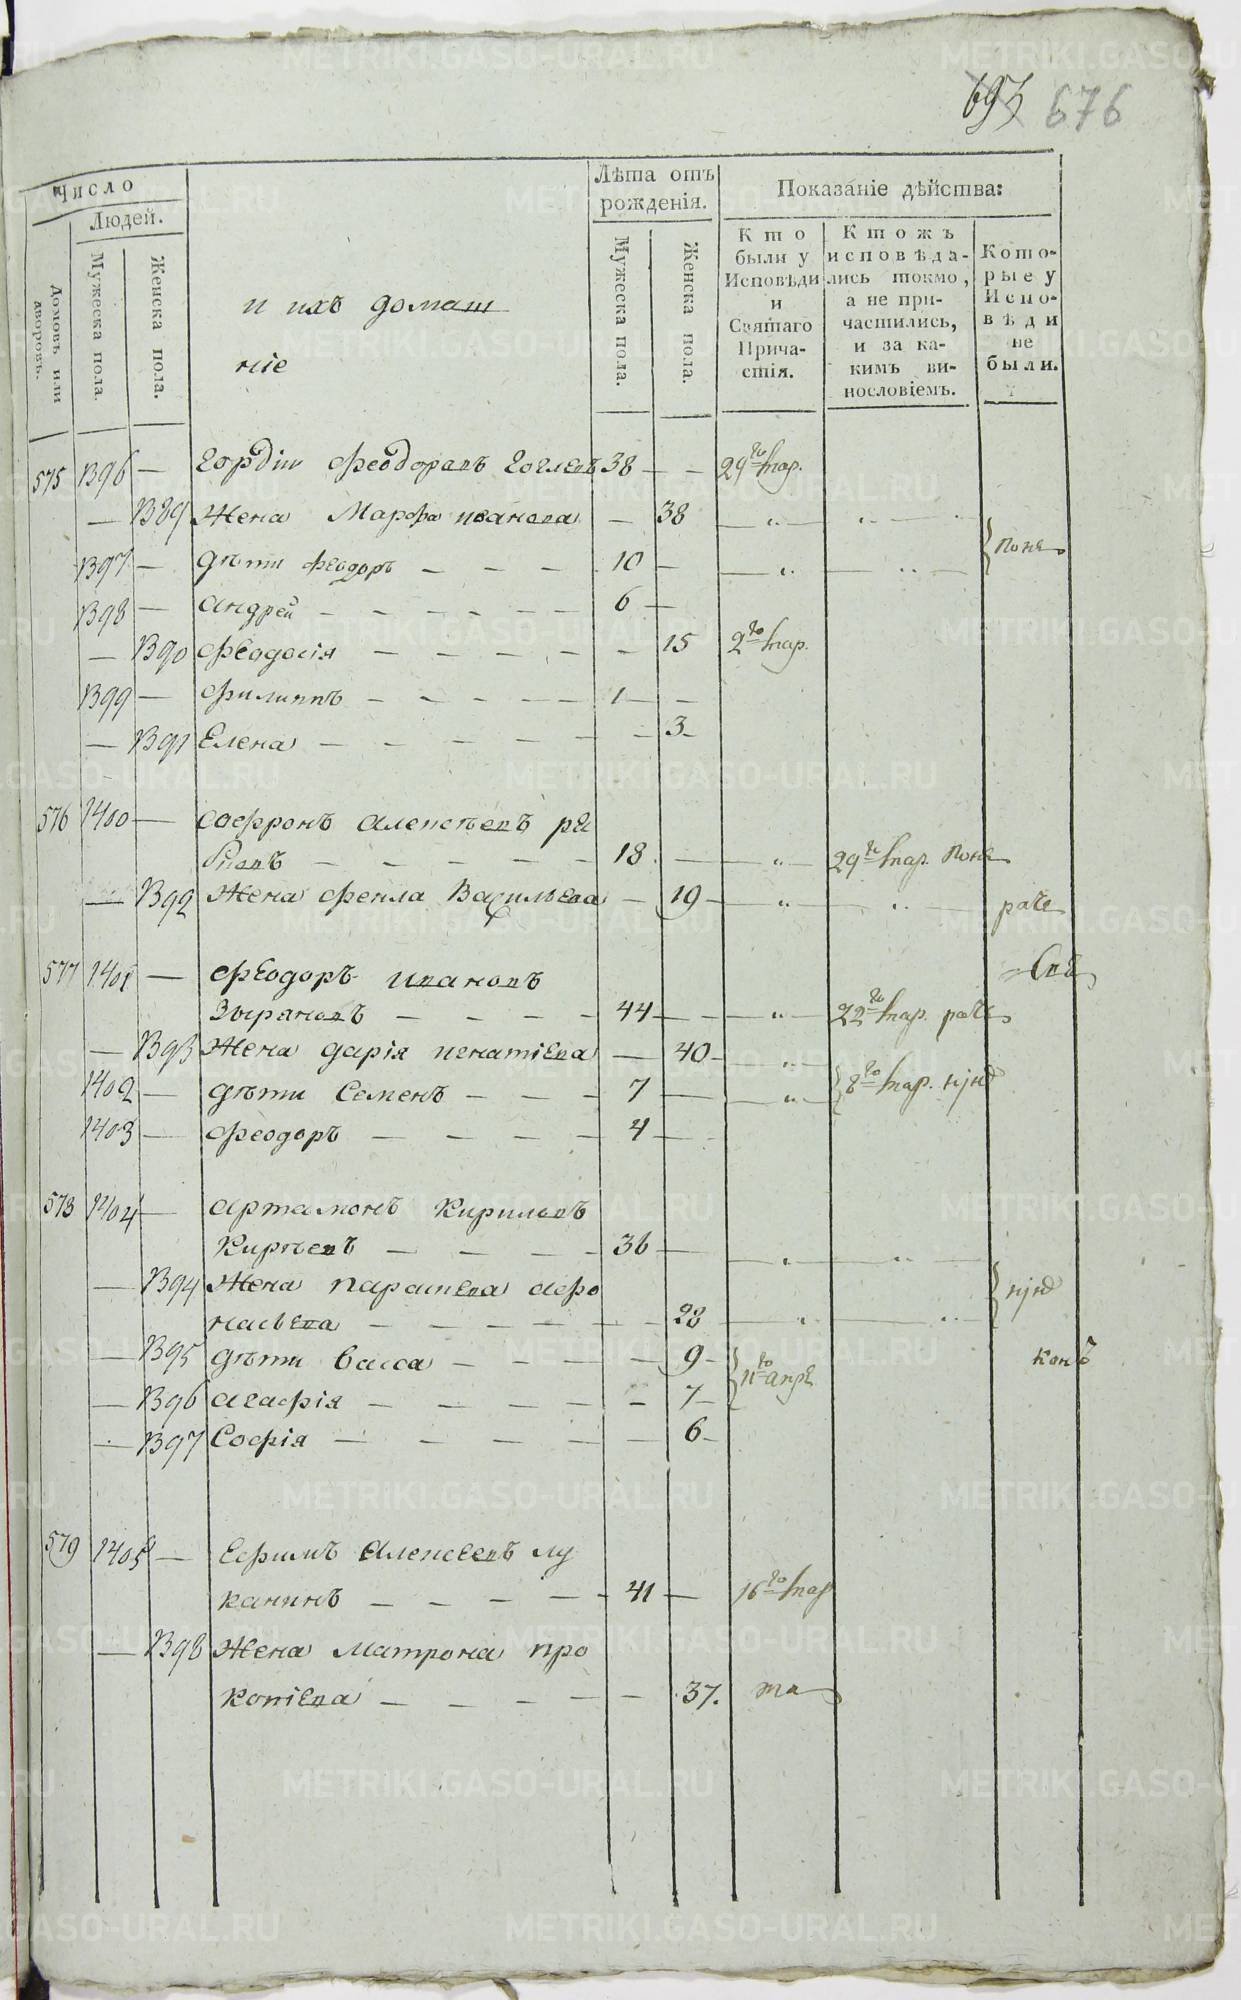 693 676
Число
Людей.
Домовъ или дворовъ.
Мужеска пола.
Женска пола.
и ихъ домаш
ніе
Лѣта отъ
рожденія.
Мужеска пола.
Женска пола.
Показаніе дѣйства:
Кто
были у
Исповѣди
и
Святаго
Прича-
стія.
Ктожъ
исповѣда-
лись токмо,
а не при-
частились,
и за ка-
кимъ ви-
нословіемъ.
Кото-
рые у
Испо-
вѣди
не
были.
575 1396 — Гордіи Феодоровъ 38 — — 29го
— 1389 Жена Марфа иванова — 38 — „ — „ —
1397 — дѣти Феодоръ — — — 10 — — „ — „ —
1398 — андрей — — — — — — 6 —
— 1390 Феодосія — — — — — — 15 2го
1399 — Филиппъ — — — — — 1 — —
— 1391 Елена — — — — — — — 3
576 1400 — Софронъ алексѣевъ ря
— — — — — 18 — — „ — 29го
— 1392 Жена Фекла Васильева — 19 — „ — „ —
577 1401 — Феодоръ ивановъ
Зыряновъ — — — — 44 — — — „ — 22го
— 1393 Жена дарія игнатіева — 40 — „
1402 — дѣти Семенъ — — — 7 — — „ — 8го
1403 — Феодоръ — — — — 4 — —
573 1404 — артамонъ Кириловъ
Кирѣевъ — — — — 36 — — „ — „ —
— 1394 Жена параскева афо
насьева — — — — — — 28 — „ — „ —
— 1395 дѣти Васса — — — — — 9 11го апре
— 1396 агафія — — — — — 7
— 1397 Софія — — — — — 6
579 1405 — Ефимъ Алексеевъ лу
канинъ — — — — — 41 — 16го
— 1398 Жена Матрона про
копіева — — — — — 37.